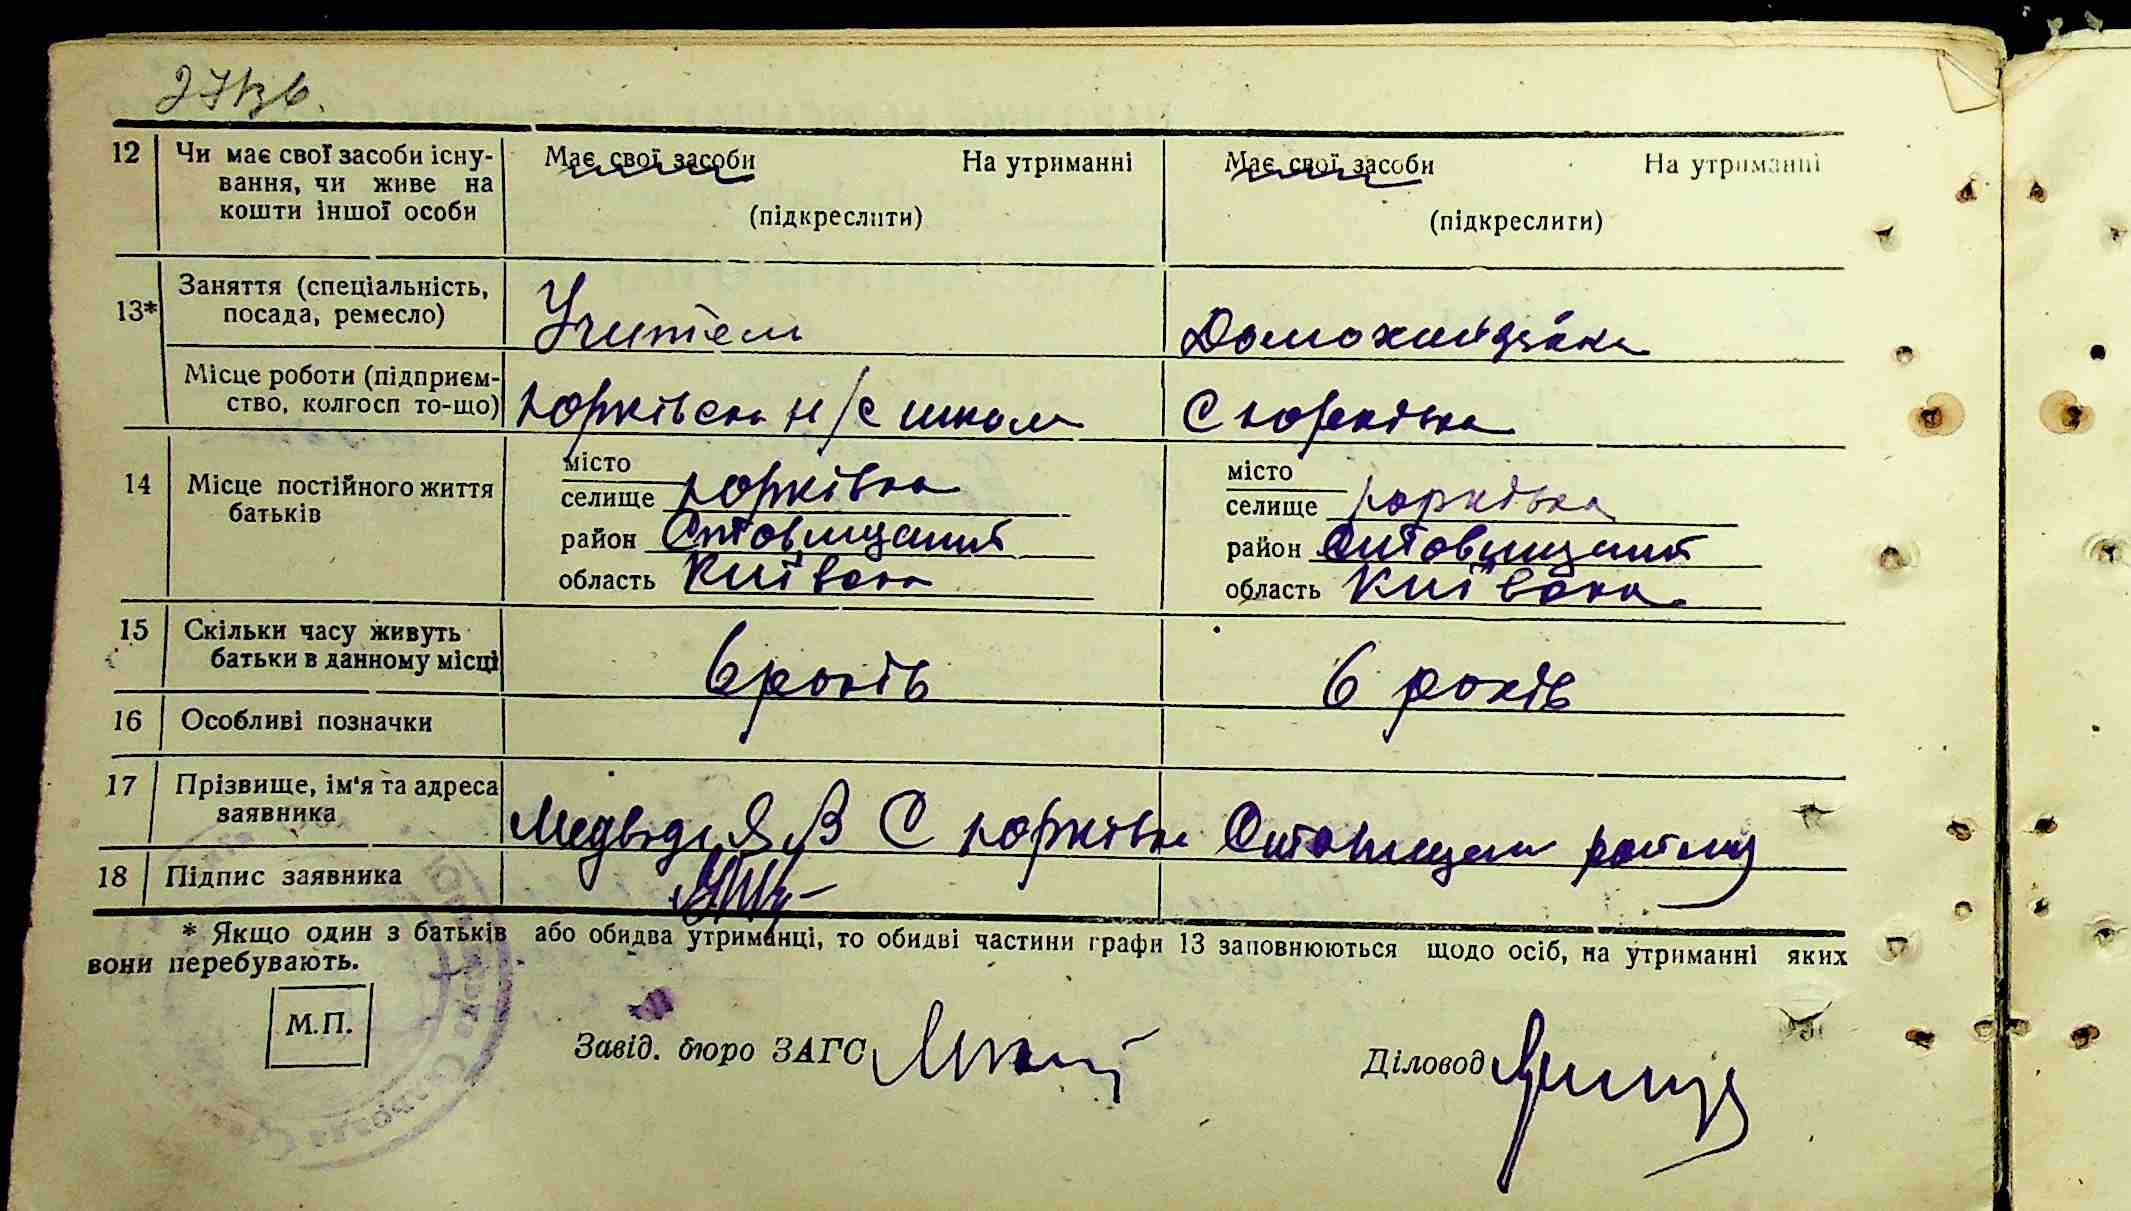 27зв.
12 Чи має свої засоби існування, чи живе на кошти іншої особи
Має свої засоби На утриманні
(підкреслити)
Має свої засоби На утриманні
(підкреслити)
13* Заняття (спеціальність,
посада, ремесло)
Учитель
Домохазяйка
Місце роботи (підприєм-
ство, колгосп то-що)
Юрківська н/с школа
С Юрківка
14 Місце постійного життя
батьків
місто
селище Юрківка
район
область Київська
місто
селище Юрківка
район
область Київська
15 Скільки часу живуть
батьки в данному місці
6 років
6 років
16 Особливі позначки
17 Прізвище, ім'я та адреса
заявника
Медвідь Я В С Юрківка району
18 Підпис заявника
* Якщо один з батьків або обидва утриманці, то обидві частини графи 13 заповнюються щодо осіб, на утриманні яких
вони перебувають.
М.П.
Завід. бюро ЗАГС
Діловод